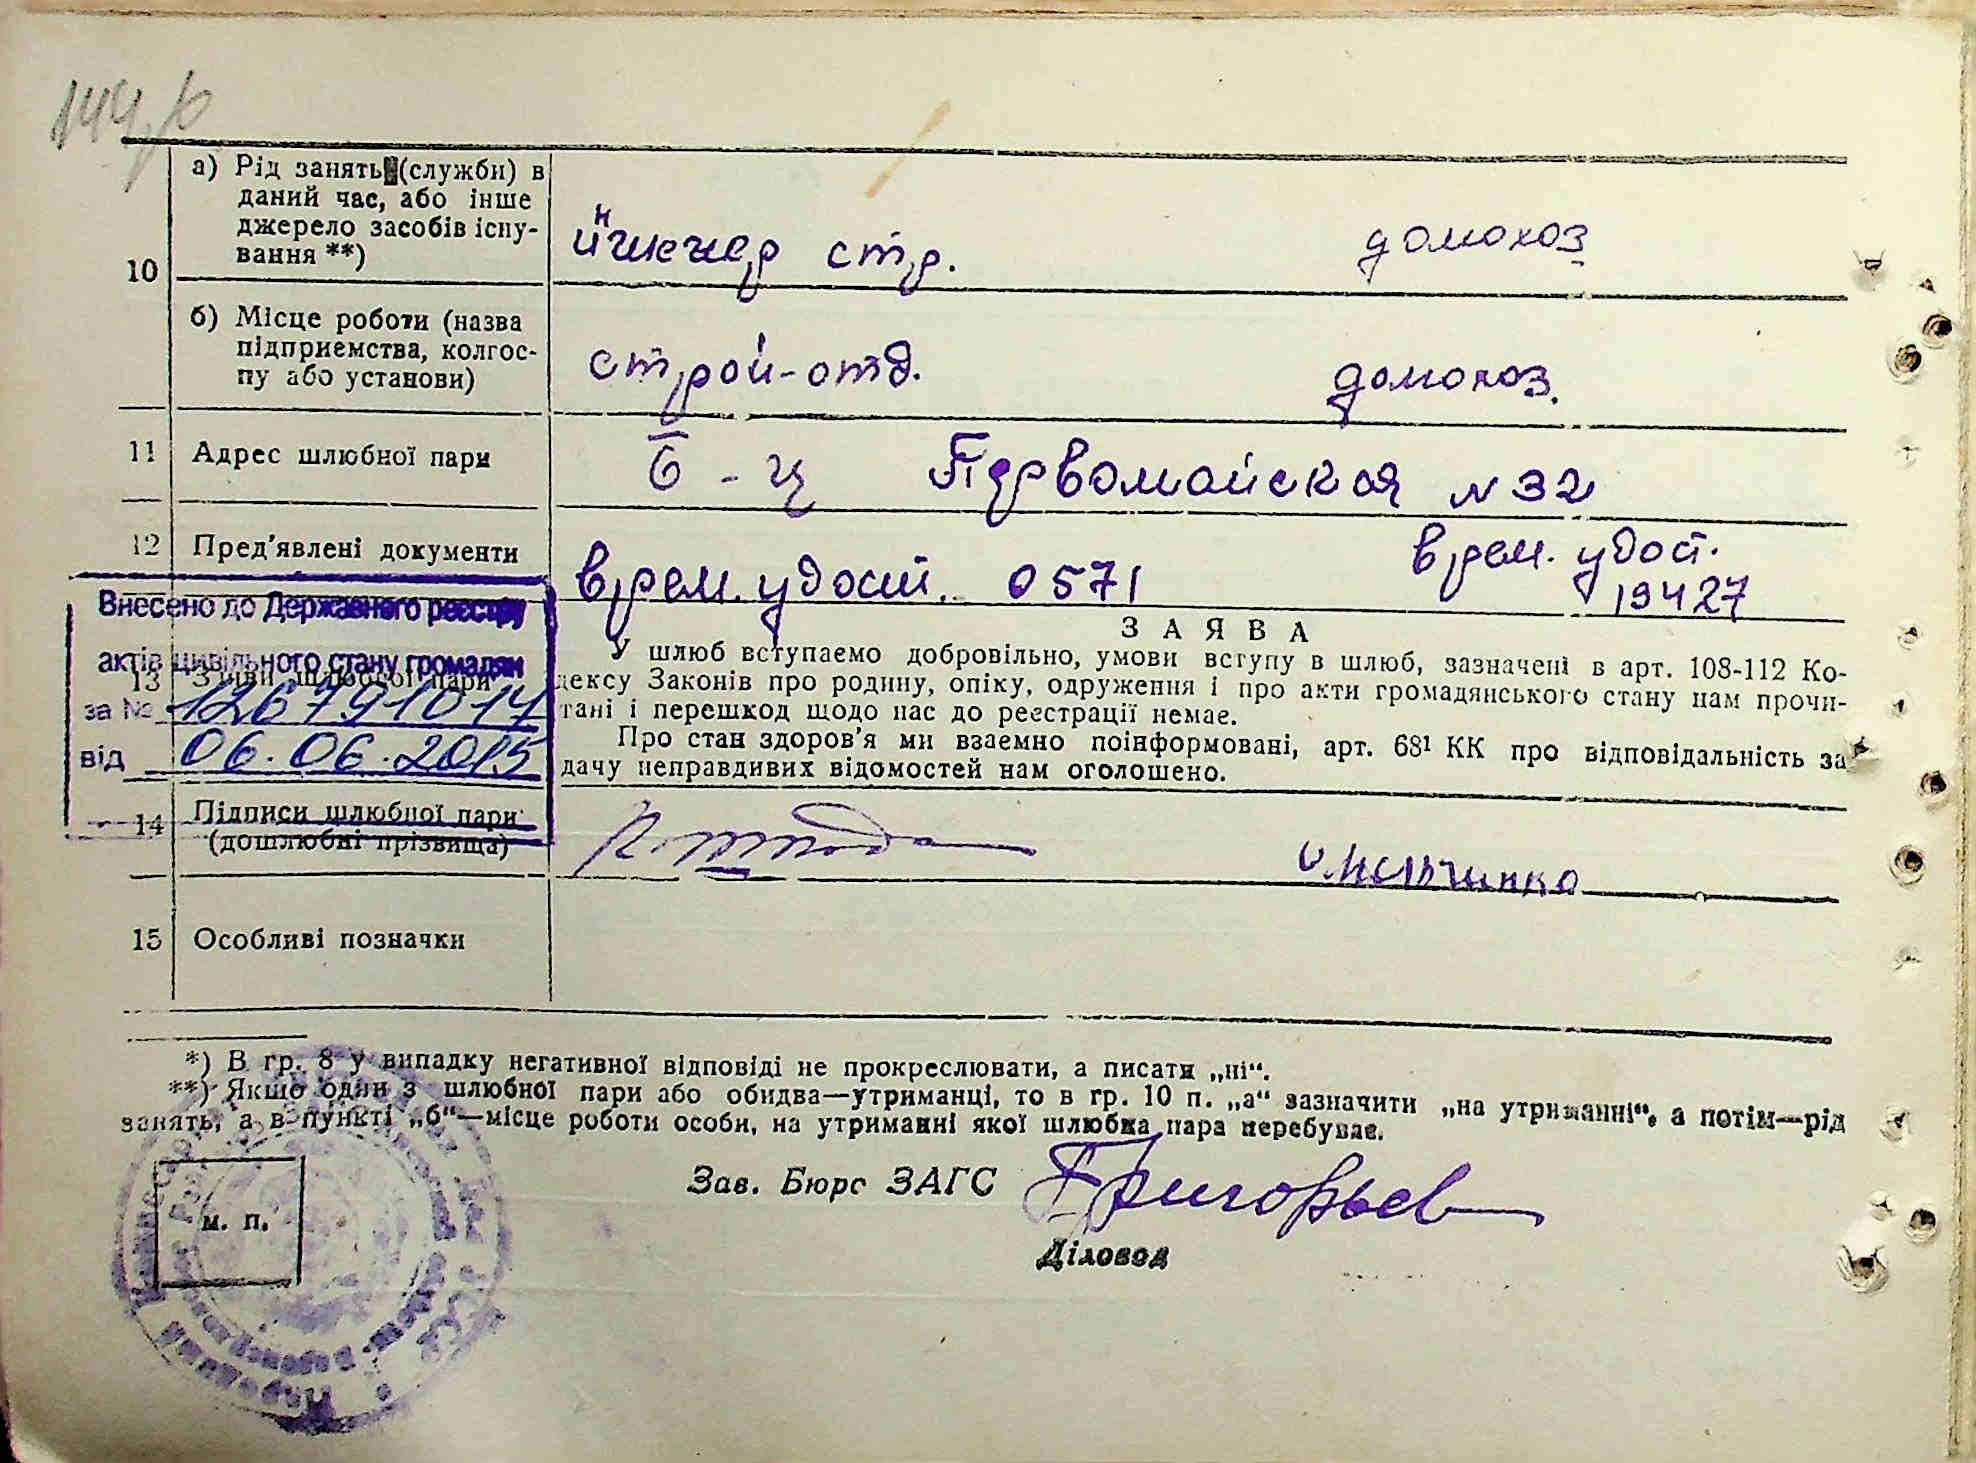 10
а) Рід занять (служби) в
даний час, або інше
джерело засобів існу-
вання **)
инженер стр.
домохоз
б) Місце роботи (назва
підприємства, колгос-
пу або установи)
строй-отд.
домохоз.
11 Адрес шлюбної пари
б-ц Первомайская N 32
12 Пред'явлені документи
врем. удост. 0571
врем. удост.
19427
Внесено до Державного реєстру
актів цивільного стану громадян
за № 126791014
від 06.06.2015
13 Заяви шлюбної пари
З А Я В А
У шлюб вступаемо добровільно, умови вступу в шлюб, зазначені в арт. 108-112 Ко-
дексу Законів про родину, опіку, одруження і про акти громадянського стану нам прочи-
тані і перешкод щодо нас до реєстрації немає.
Про стан здоров'я ми взаемно поінформовані, арт. 68¹ КК про відповідальність за
дачу неправдивих відомостей нам оголошено.
14 Підписи шлюбної пари
(дошлюбні прізвища)
15 Особливі позначки
*) В гр. 8 у випадку негативної відповіді не прокреслювати, а писати „ні“.
**) Якщо один з шлюбної пари або обидва—утриманці, то в гр. 10 п. „а“ зазначити „на утриманні“, а потім—рід
занять, а в пункті „б“—місце роботи особи, на утриманні якої шлюбна пара перебуває.
Зав. Бюро ЗАГС Григорьев
м. п.
Діловод